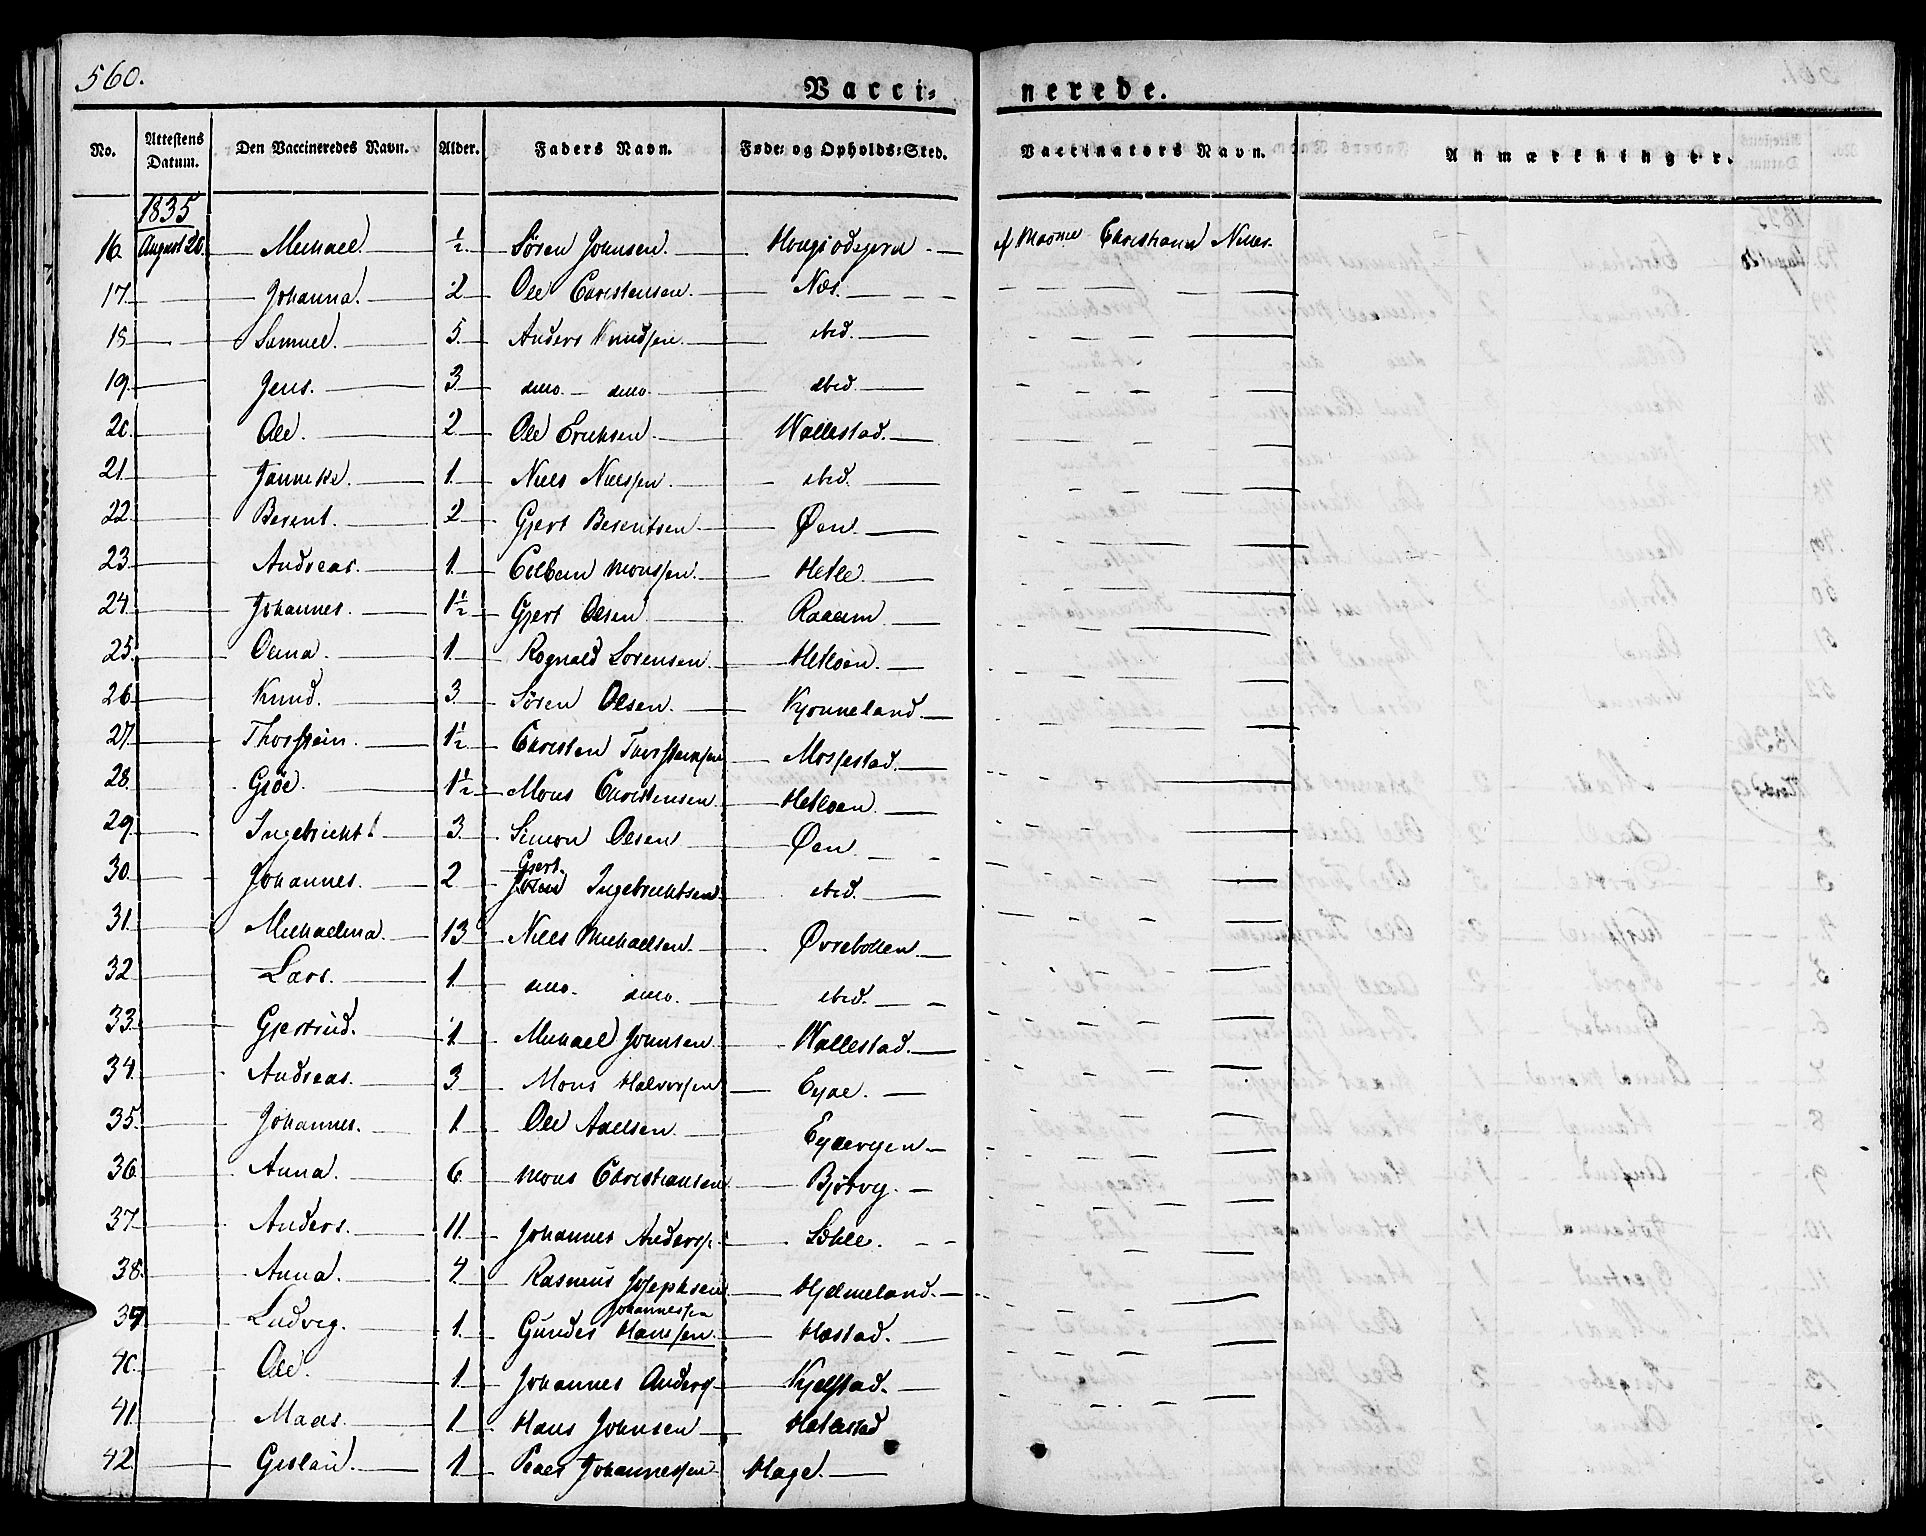 560.
Vacci- nerede.
No. Attestens Datum. Den Vaccineredes Navn. Alder. Faders Navn. Føde- og Opholds-Sted. Vaccinators Navn. Anmærkninger.
1835
16. August 20. Michael. ½ Søren Johnsen. af Madme Christiane
17. Johanna. 2 Ole Christensen. Næs.
18 Samuel. 5. Anders Knudsen. ibid.
19. Jens. 3 dito dito ibid.
20. Ole. 2. Ole Erichsen. Wallestad.
21 Janneke. 1. Niels Nielssen ibid.
22. Berent. 2 Gjert Berentsen Øen.
23. Andreas. 1. Colben Monssen. Hetle.
24. Johannes. 1½ Gjert Olsen Raaeim
25. Oena. 1. Rognald Sørensen Hetløen.
26. Knud. 3. Søren Olsen. Kjønneland.
27. Thorstein. 1½ Christen Thorsteinsen Mossestad.
28. Gjöe. 1½ Mons Christensen Hetløen.
29. Ingebricht 3. Simon Olsen Øen
30. Johannes. 2 Gjert Ingebrichtsen ibid.
31. Michaelina. 13. Niels Michaelsen. Øvrebøllen.
32 Lars. 1. dito. dito. ibid.
33. Gjertrud. 1. Michael Johnsen Wallestad.
34. Andreas. 3 Mons Halvorsen Eyae.
35. Johannes. 1. Ole Axelsen.
36. Anna. 6. Mons Christiansen Bjørvig.
37. Anders. 11. Johannes Anderss.
38. Anna. 4. Rasmus Josephsen Hjelmeland.
Johannessen
39. Ludvig. 1. Gunder Hansen.
40. Ole. 1. Johannes Anders
41. Maas. 1 Hans Johnsen Hetlestad
42. Gislau. 1 Peder Johannessen Hage.